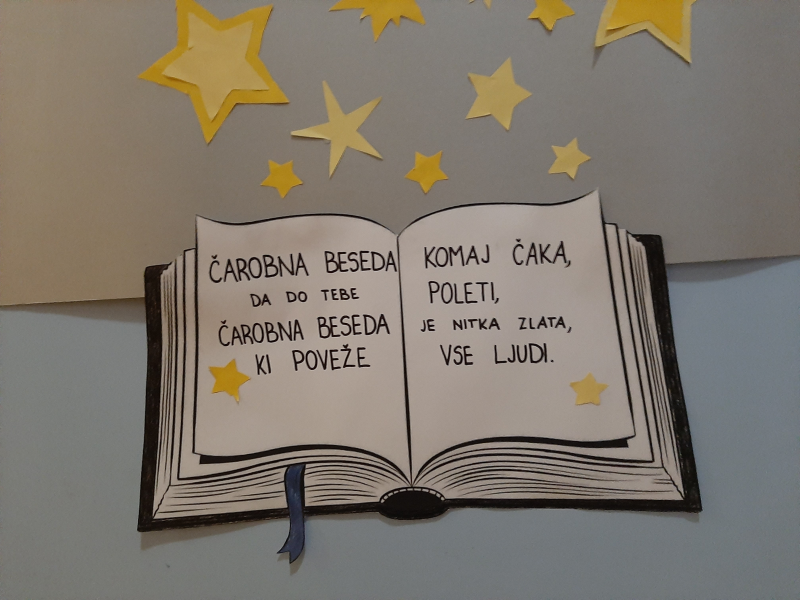 ČAROBNA BESEDA KOMAJ ČAKA,
DA DO TEBE POLETI,
ČAROBNA BESEDA JE NITKA ZLATA,
KI POVEŽE VSE LJUDI.